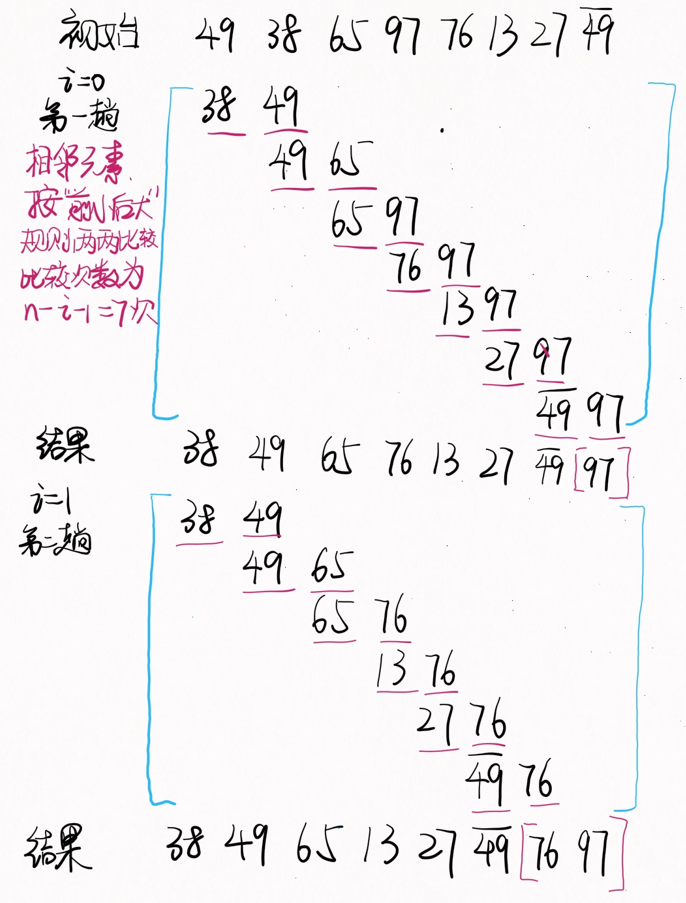 初始 49 38 65 97 76 13 27 4̅9̅
i=0
第一趟
38 49
49 65
相邻元素,
按"前小后大"
65 97
规则两两比较
76 97
比较次数为
13 97
n-i-1=7次
27 97
4̅9̅ 97
结果 38 49 65 76 13 27 4̅9̅ [97]
i=1
第二趟
38 49
49 65
65 76
13 76
27 76
4̅9̅ 76
结果 38 49 65 13 27 4̅9̅ [76 97]